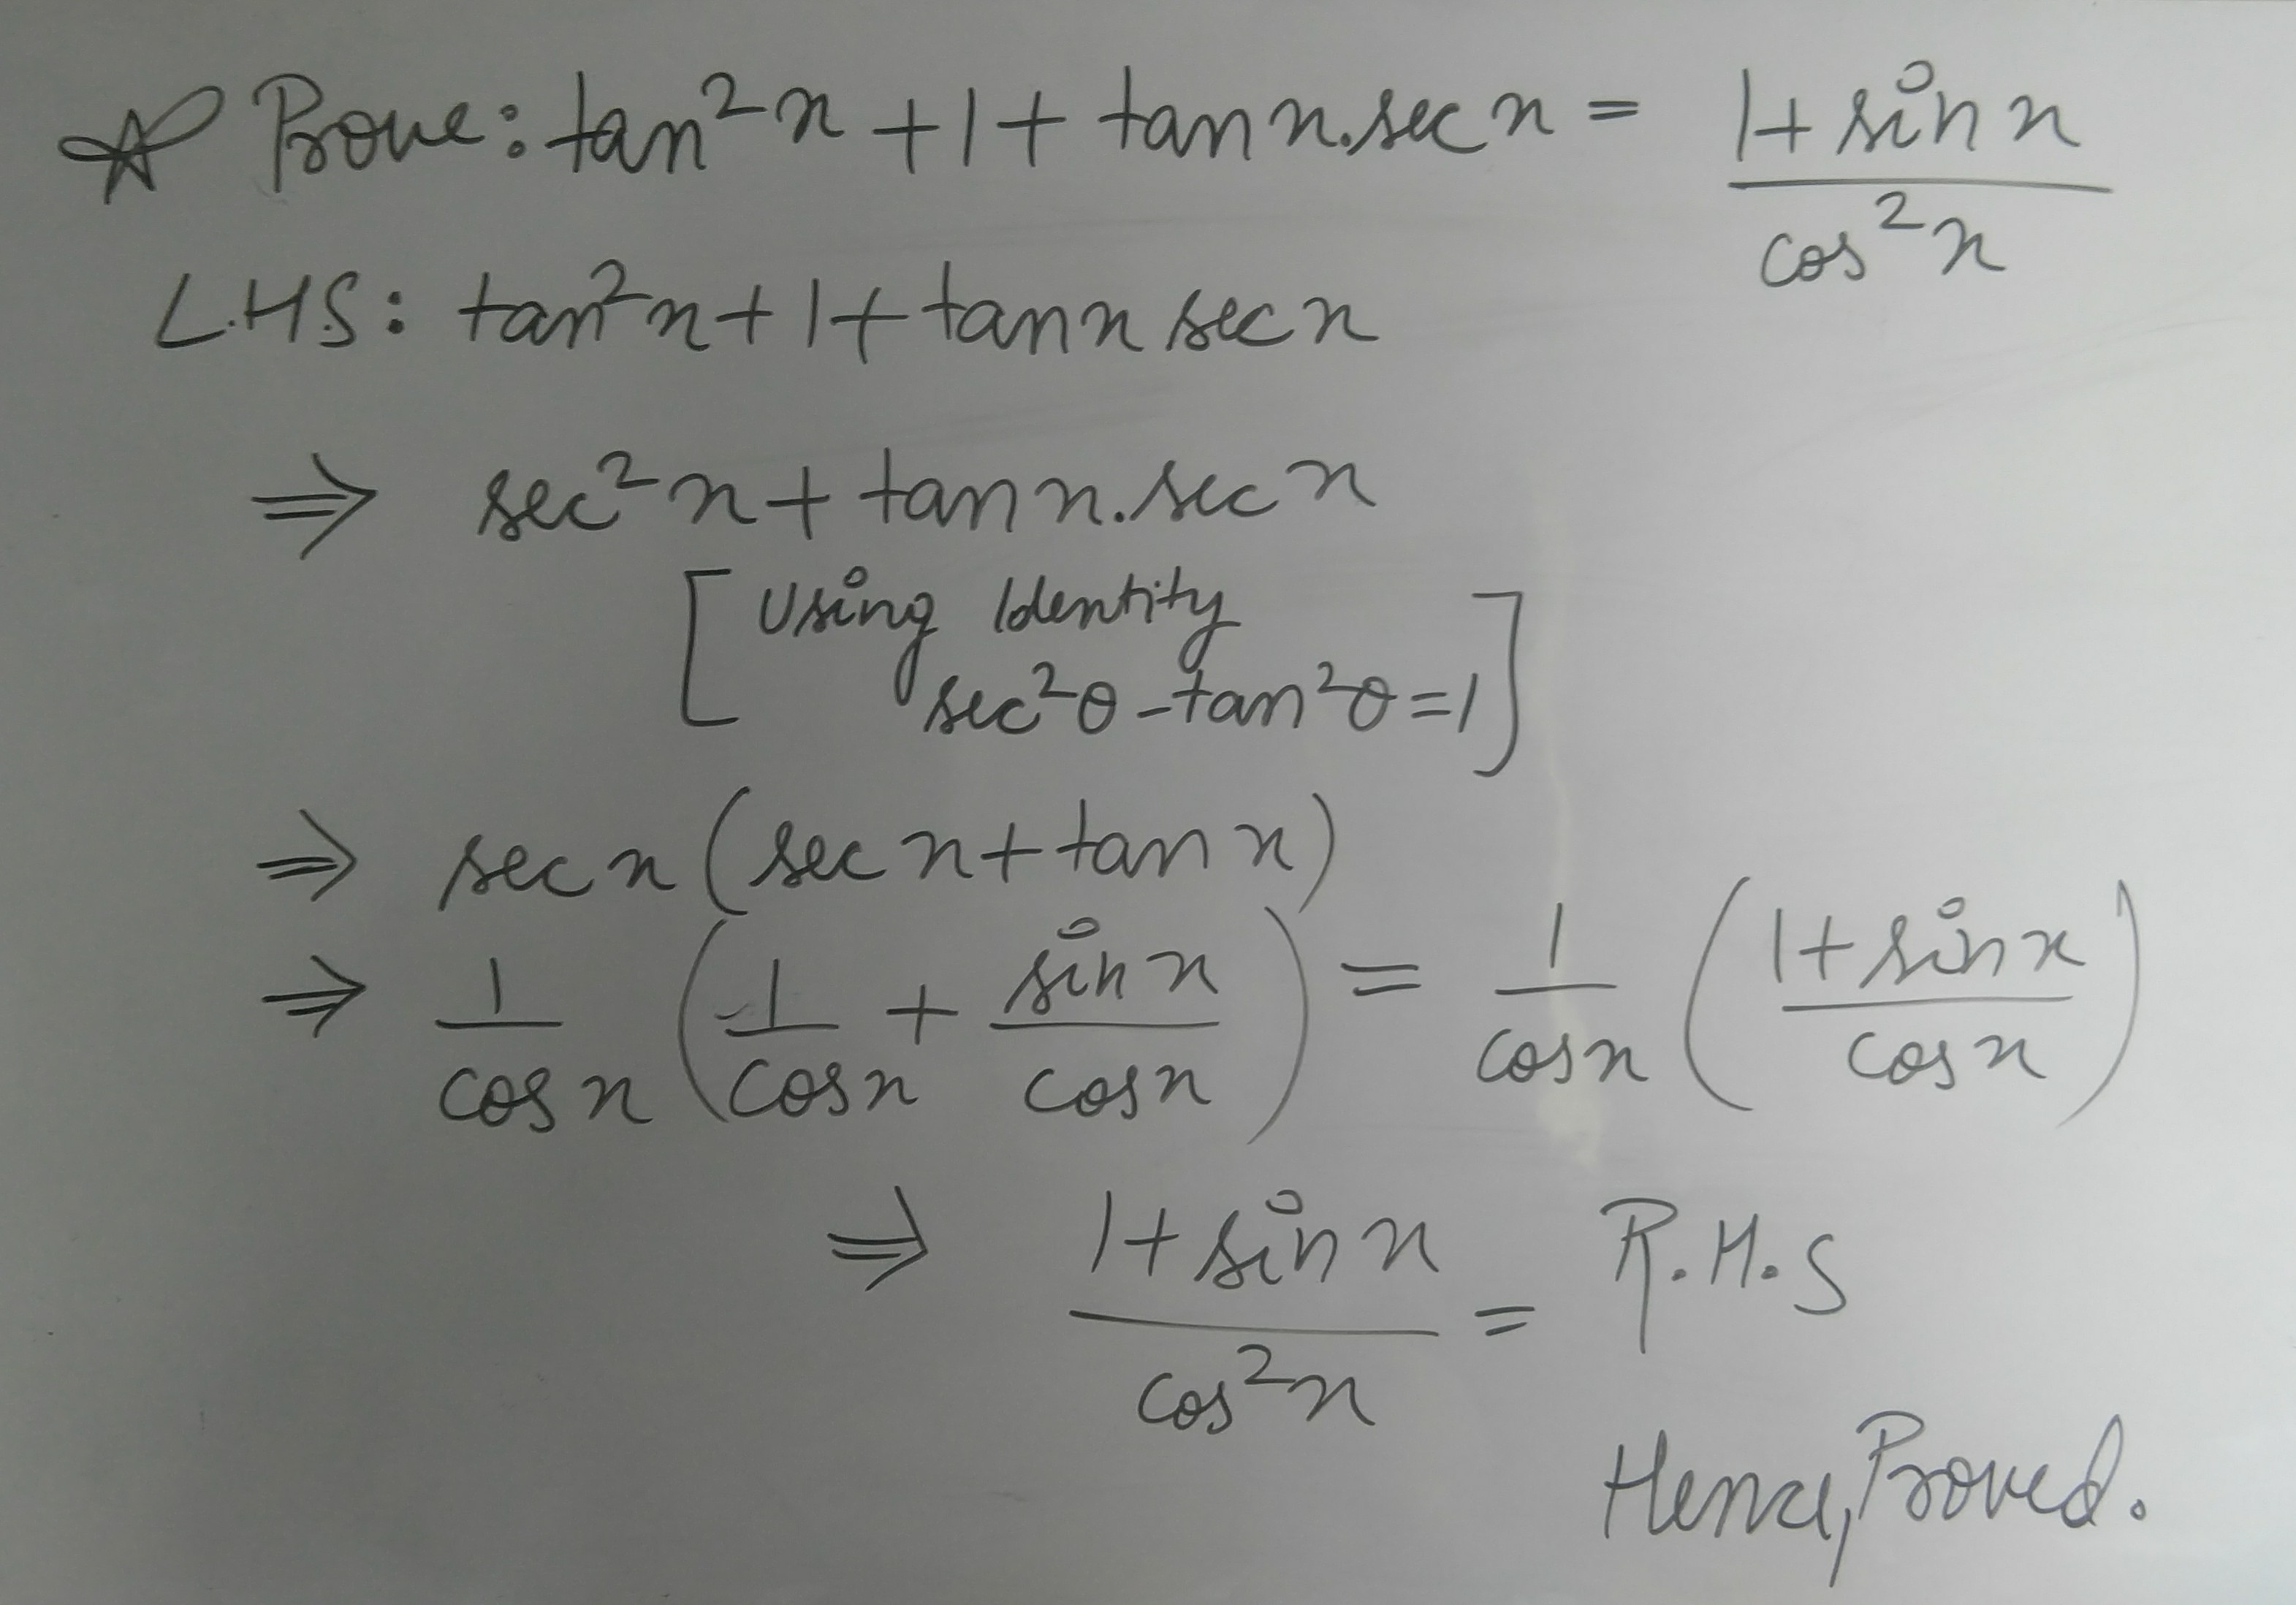 ☆ Prove: tan²x + 1 + tan x . sec x = (1 + sin x)/(cos²x)
L.H.S: tan²x + 1 + tan x sec x
⇒ sec²x + tan x . sec x
[Using Identity
sec²θ - tan²θ = 1]
⇒ sec x (sec x + tan x)
⇒ 1/(cos x) (1/(cos x) + (sin x)/(cos x)) = 1/(cos x) ((1 + sin x)/(cos x))
⇒ (1 + sin x)/(cos²x) = R.H.S
Hence, Proved.